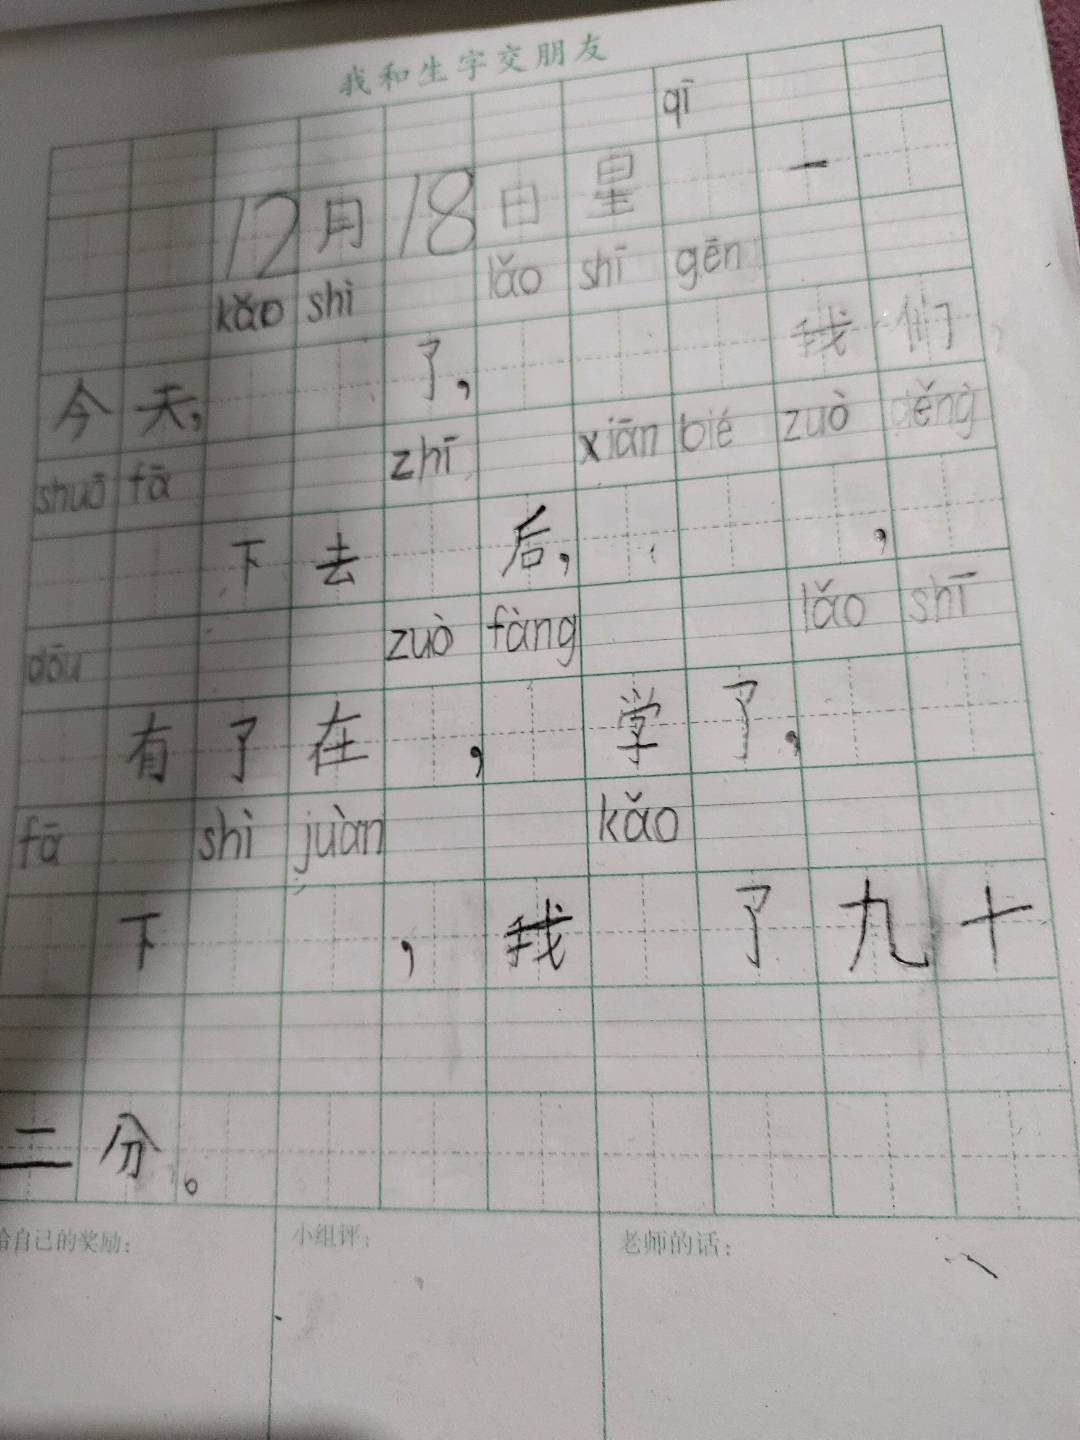 我和生字交朋友
qī
12月18日星 一
kǎo shì lǎo shī gēn
今天, 了, 我们,
shuō fā zhī xiān bié zuò děng
下去 后, ,
dōu zuò fàng lǎo shī
有了在 , 学了,
fā shì juàn kǎo
下 , 我 了九十
二分。
给自己的奖励: 小组评: 老师的话: